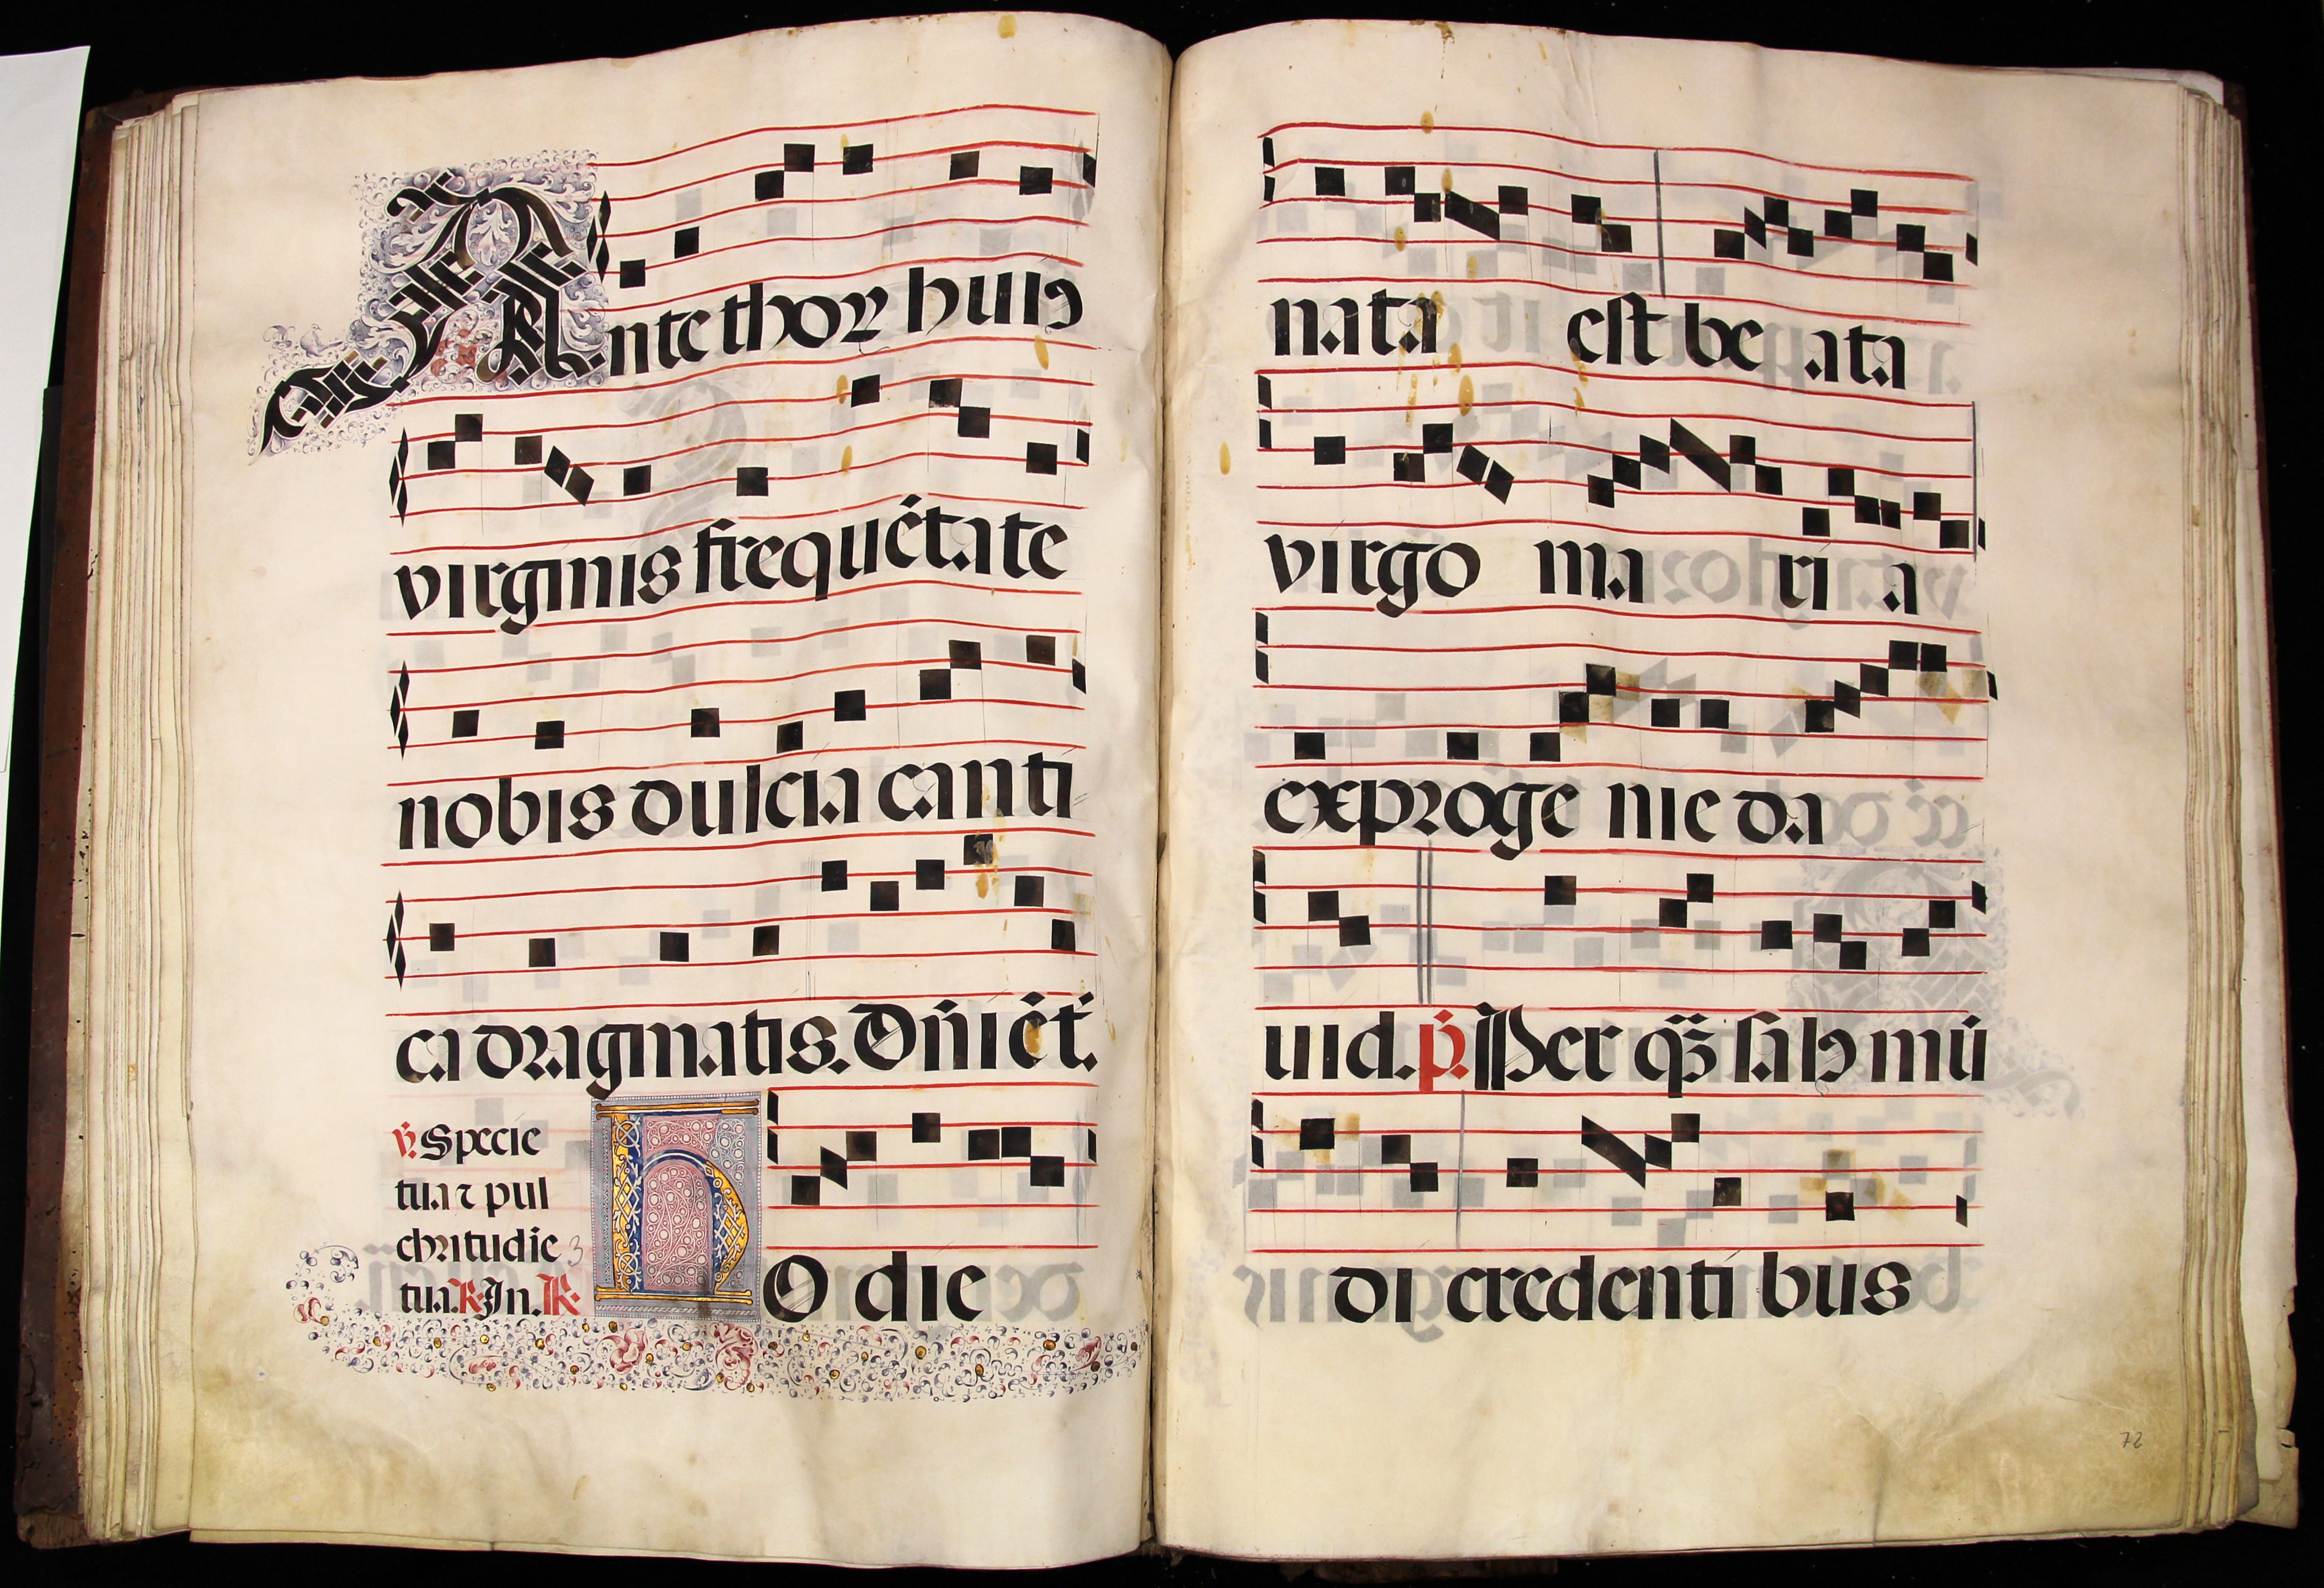 Ante thorũ huiꝰ
virginis frequẽtate
nobis dulcia canti
ca dragmatis. Dñi ẽt.
℣. Specie
tua ⁊ pul
chritudie
3
tua. R. In. R.
HO die
nata est be ata
virgo ma ri a
ex proge nie da
uid. p̃. Per quã salꝰ mũ
di credenti bus
72